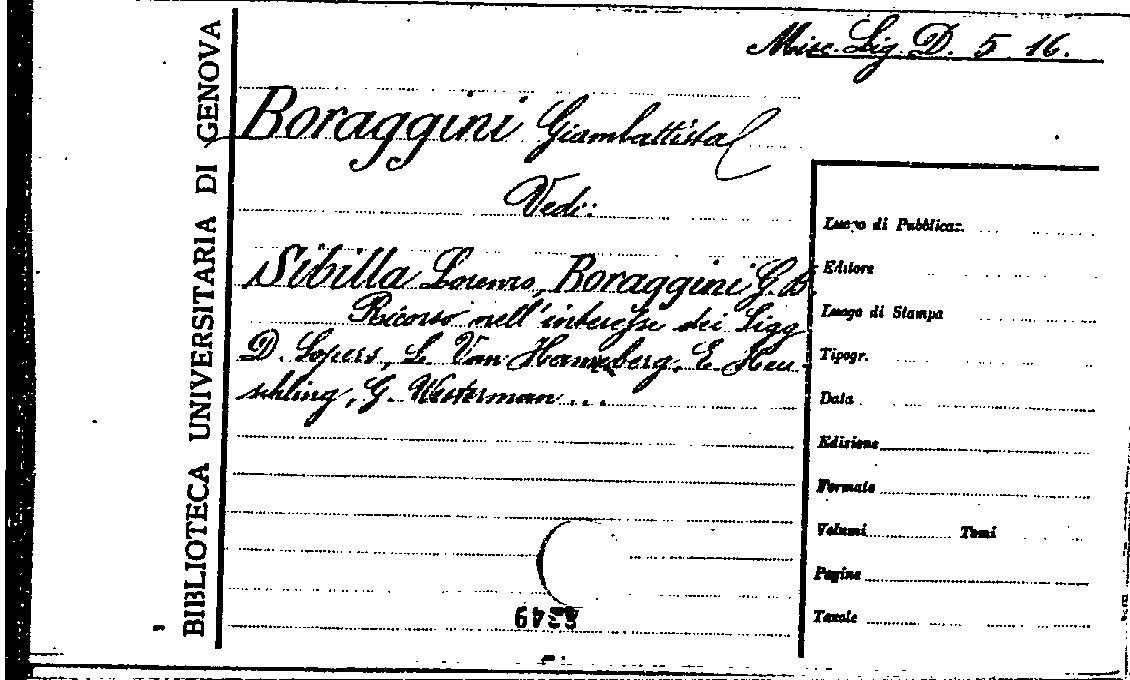 Misc. Lig. D. 5 16.
BIBLIOTECA UNIVERSITARIA DI GENOVA
Boraggini Giambattista
Vedi:
Sibilla Lorenzo, Boraggini G. B.
Ricorso nell'interesse dei Sigg
D. Lopers, L. Van Hameberg, E. Heu-
schling, G. Westerman...
Luogo di Pubblicaz.
Editore
Luogo di Stampa
Tipogr.
Data
Edizione
Formato
Volumi Tomi
Pagine
Tavole